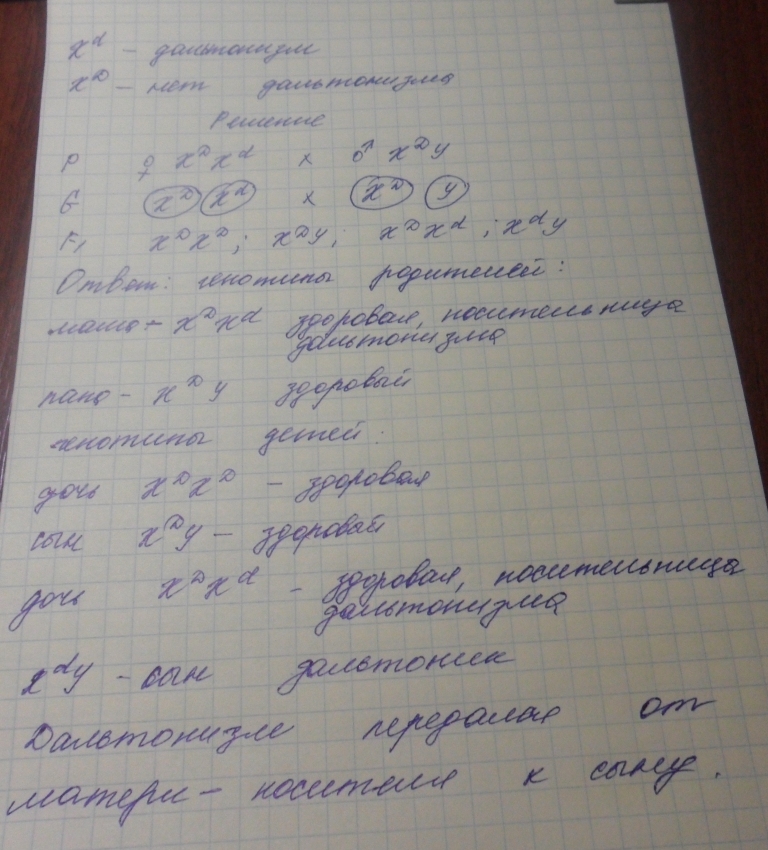 x^d – дальтонизм
x^D – нет дальтонизма
Решение
P ♀ x^D x^d × ♂ x^D y
G x^D x^d × x^D y
F1 x^D x^D; x^D y; x^D x^d; x^d y
Ответ: генотипы родителей:
мама – x^D x^d здоровая, носительница
дальтонизма
папа – x^D y здоровый
генотипы детей:
дочь x^D x^D – здоровая
сын x^D y – здоровый
дочь x^D x^d – здоровая, носительница
дальтонизма
x^d y – сын дальтоник
Дальтонизм передался от
матери – носителя к сыну.